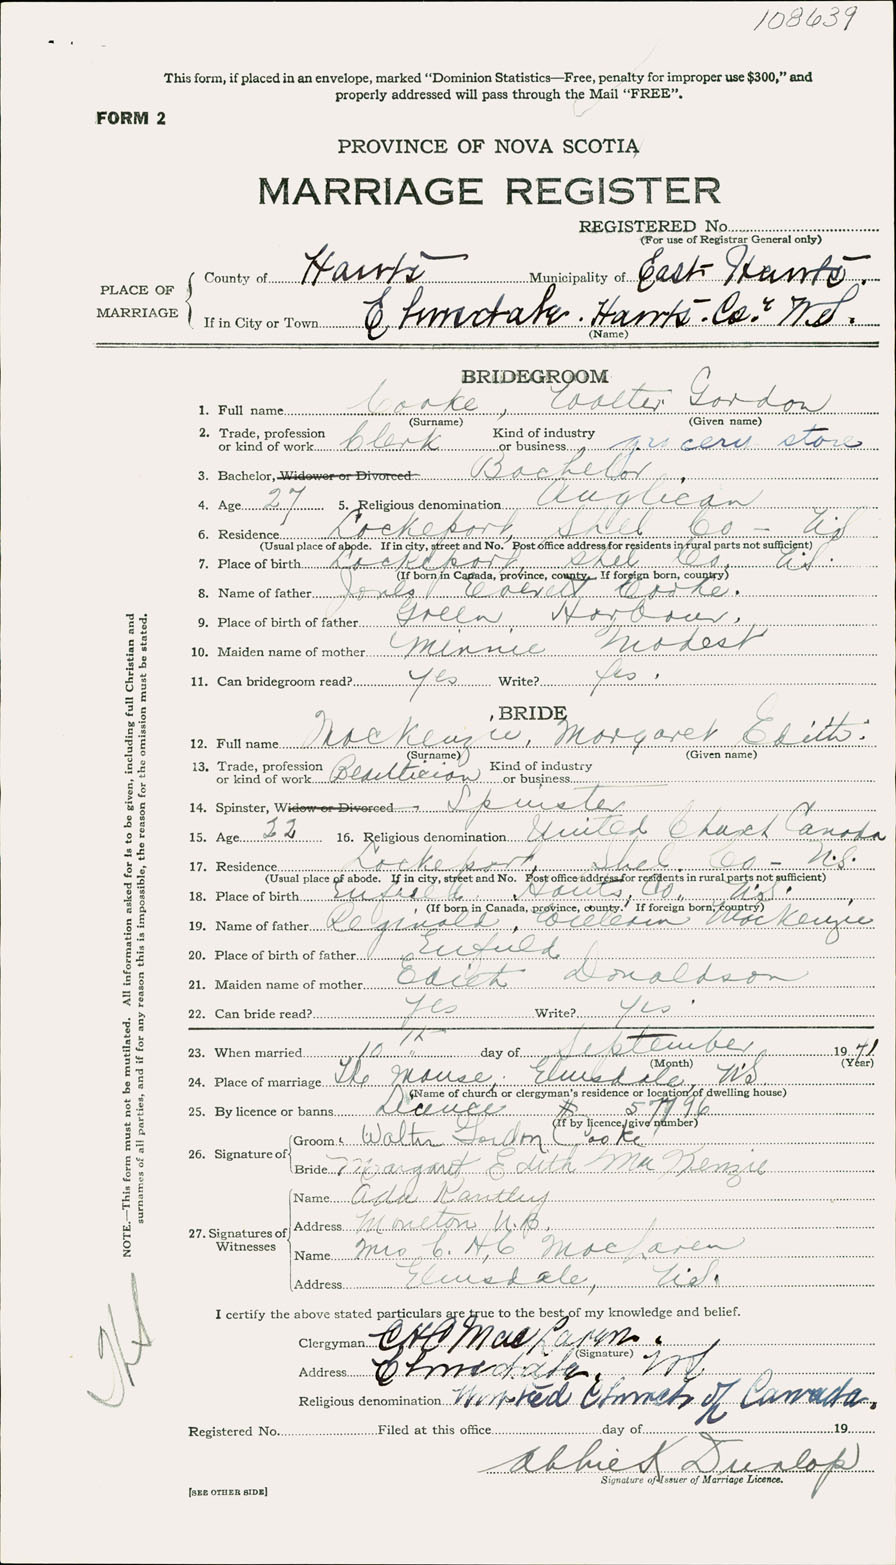 108639
This form, if placed in an envelope, marked "Dominion Statistics—Free, penalty for improper use $300," and
properly addressed will pass through the Mail "FREE".
FORM 2
PROVINCE OF NOVA SCOTIA
MARRIAGE REGISTER
REGISTERED No.
(For use of Registrar General only)
PLACE OF MARRIAGE
County of Hants Municipality of East Hants.
If in City or Town Elmsdale. Hants. Co., N.S.
(Name)
BRIDEGROOM
1. Full name Cooke, Walter Gordon
(Surname) (Given name)
2. Trade, profession or kind of work Clerk Kind of industry or business grocery store
3. Bachelor, Widower or Divorced Bachelor
4. Age 27 5. Religious denomination Anglican
6. Residence Lockeport, Shel Co - N.S.
(Usual place of abode. If in city, street and No. Post office address for residents in rural parts not sufficient)
7. Place of birth Lockeport, Shel Co, N.S.
(If born in Canada, province, county. If foreign born, country)
8. Name of father Everett Cooke.
9. Place of birth of father Green Harbour.
10. Maiden name of mother Minnie Modest
11. Can bridegroom read? yes Write? yes.
BRIDE
12. Full name MacKenzie, Margaret Edith.
(Surname) (Given name)
13. Trade, profession or kind of work Beautician Kind of industry or business
14. Spinster, Widow or Divorced Spinster
15. Age 22 16. Religious denomination United Church Canada
17. Residence Lockeport, Shel Co - N.S.
(Usual place of abode. If in city, street and No. Post office address for residents in rural parts not sufficient)
18. Place of birth Enfield Hants, Co., N.S.
(If born in Canada, province, county. If foreign born, country)
19. Name of father Reginald, William MacKenzie
20. Place of birth of father Enfield
21. Maiden name of mother Edith Donaldson
22. Can bride read? yes Write? yes.
23. When married 10th day of September 19
(Month) (Year)
24. Place of marriage The Manse, Elmsdale, N.S.
(Name of church or clergyman's residence or location of dwelling house)
25. By licence or banns Licence # 57796
(If by licence, give number)
26. Signature of
Groom Walter Gordon Cooke
Bride Margaret Edith MacKenzie
27. Signatures of Witnesses
Name Ada
Address Moncton N.B.
Name Mrs C. H. C MacLaren
Address Elmsdale, N.S.
I certify the above stated particulars are true to the best of my knowledge and belief.
Clergyman C H C MacLaren.
(Signature)
Address Elmsdale, N.S.
Religious denomination United Church of Canada.
Registered No. Filed at this office day of 19
Abbie K Dunlop
Signature of Issuer of Marriage Licence.
[SEE OTHER SIDE]
NOTE.—This form must not be mutilated. All information asked for is to be given, including full Christian and
surnames of all parties, and if for any reason this is impossible, the reason for the omission must be stated.